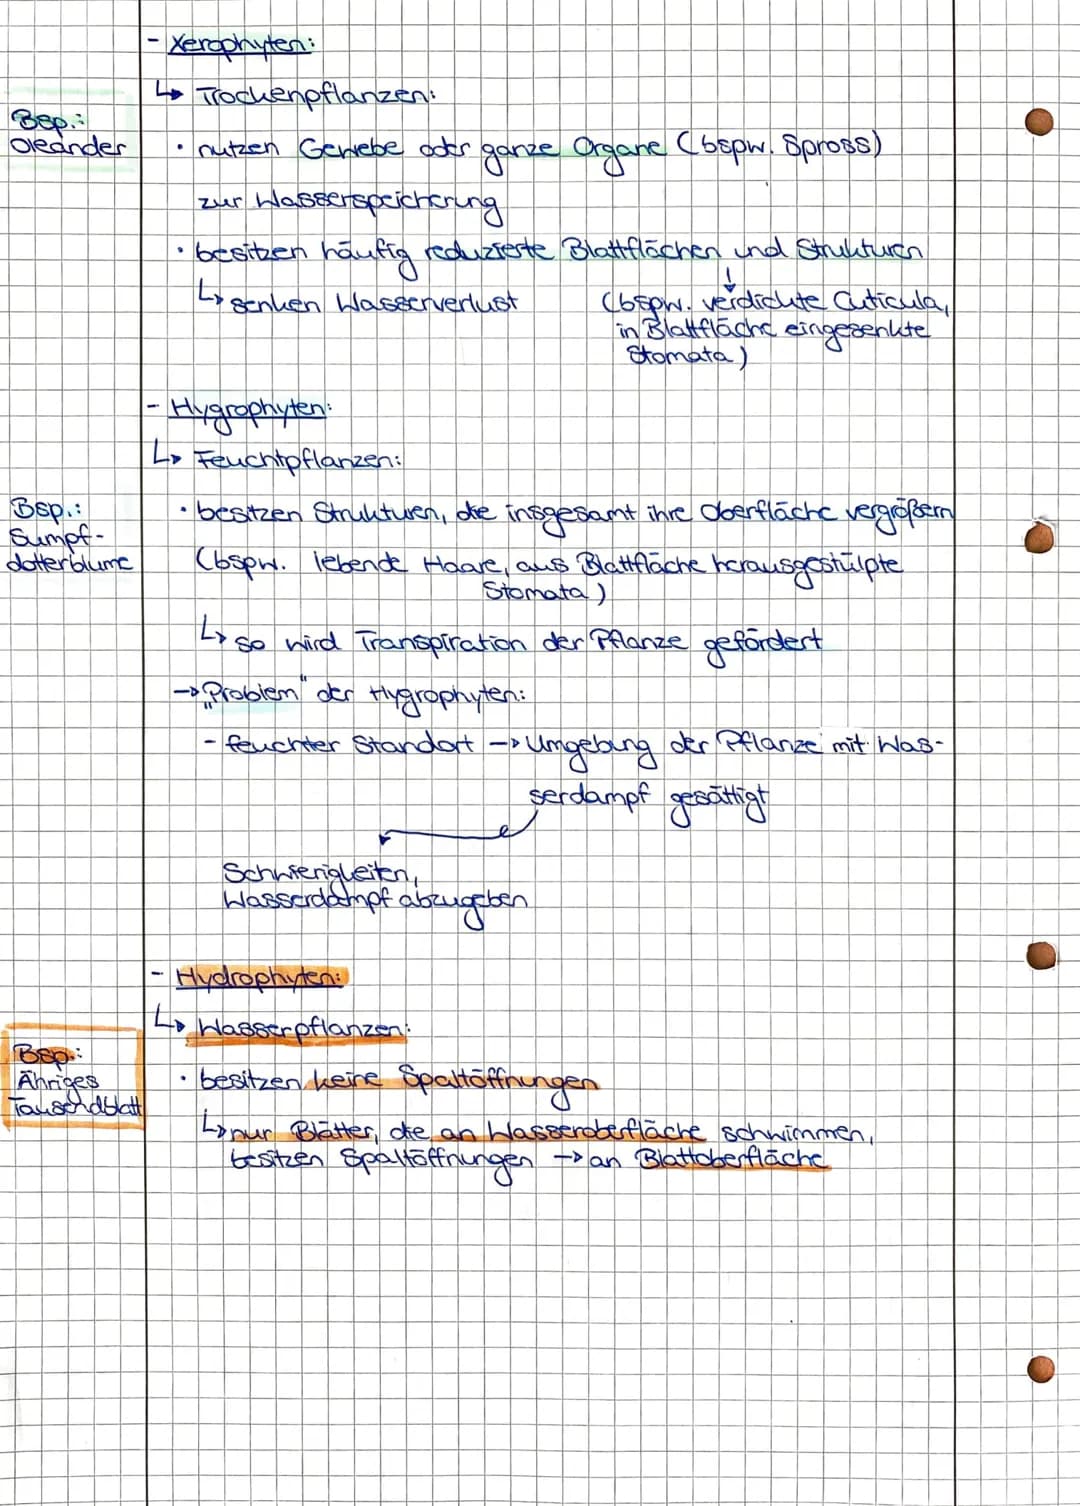 - Xerophyten:
↳ Trockenpflanzen:
Bsp.:
Oleander
• nutzen Gewebe oder ganze Organe (bspw. Spross)
zur Wasserspeicherung
• besitzen häufig reduzierte Blattflächen und Strukturen
↓
↳ senken Wasserverlust
(bspw. verdickte Cuticula,
in Blattfläche eingesenkte
Stomata)
- Hygrophyten:
↳ Feuchtpflanzen:
Bsp.:
Sumpf-
dotterblume
• besitzen Strukturen, die insgesamt ihre Oberfläche vergrößern
(bspw. lebende Haare, aus Blattfläche herausgestülpte
Stomata)
↳ so wird Transpiration der Pflanze gefördert
→ „Problem“ der Hygrophyten:
- feuchter Standort → Umgebung der Pflanze mit Was-
serdampf gesättigt
Schwierigkeiten,
Wasserdampf abzugeben
- Hydrophyten:
↳ Wasserpflanzen:
Bsp.:
Ähriges
Tausendblatt
• besitzen keine Spaltöffnungen
↳ nur Blätter, die an Wasseroberfläche schwimmen,
besitzen Spaltöffnungen → an Blattoberfläche